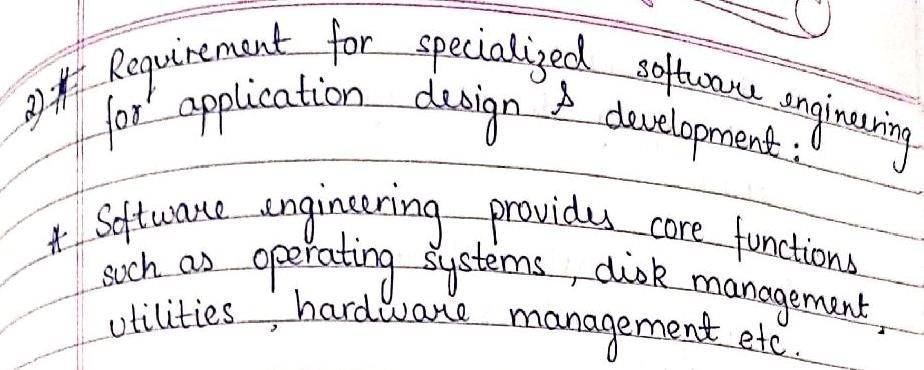 2) # Requirement for specialized software engineering
for application design & development :
# Software engineering provides core functions
such as operating systems, disk management,
utilities, hardware management etc.